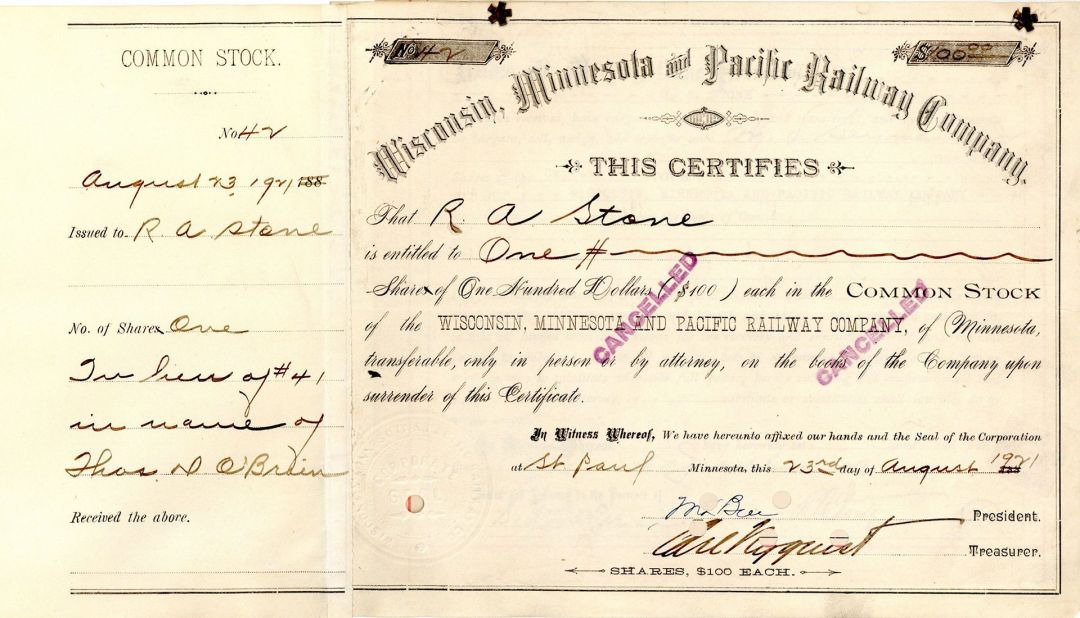 COMMON STOCK.
No 42
August 23 1921 188
Issued to R A Stone
No. of Shares One
In lieu of #41
in name of
Thos D O'Brien
Received the above.
No 42
$100.00
Wisconsin, Minnesota and Pacific Railway Company.
THIS CERTIFIES
That R. A Stone
is entitled to One #
Shares of One Hundred Dollars ($100) each in the COMMON STOCK
of the WISCONSIN, MINNESOTA AND PACIFIC RAILWAY COMPANY, of Minnesota,
transferable, only in person or by attorney, on the books of the Company upon
surrender of this Certificate.
CANCELLED
CANCELLED
In Witness Whereof, We have hereunto affixed our hands and the Seal of the Corporation
at St Paul Minnesota, this 23rd day of August 1921 188
President.
Carl Nyquist
Treasurer.
SHARES, $100 EACH.